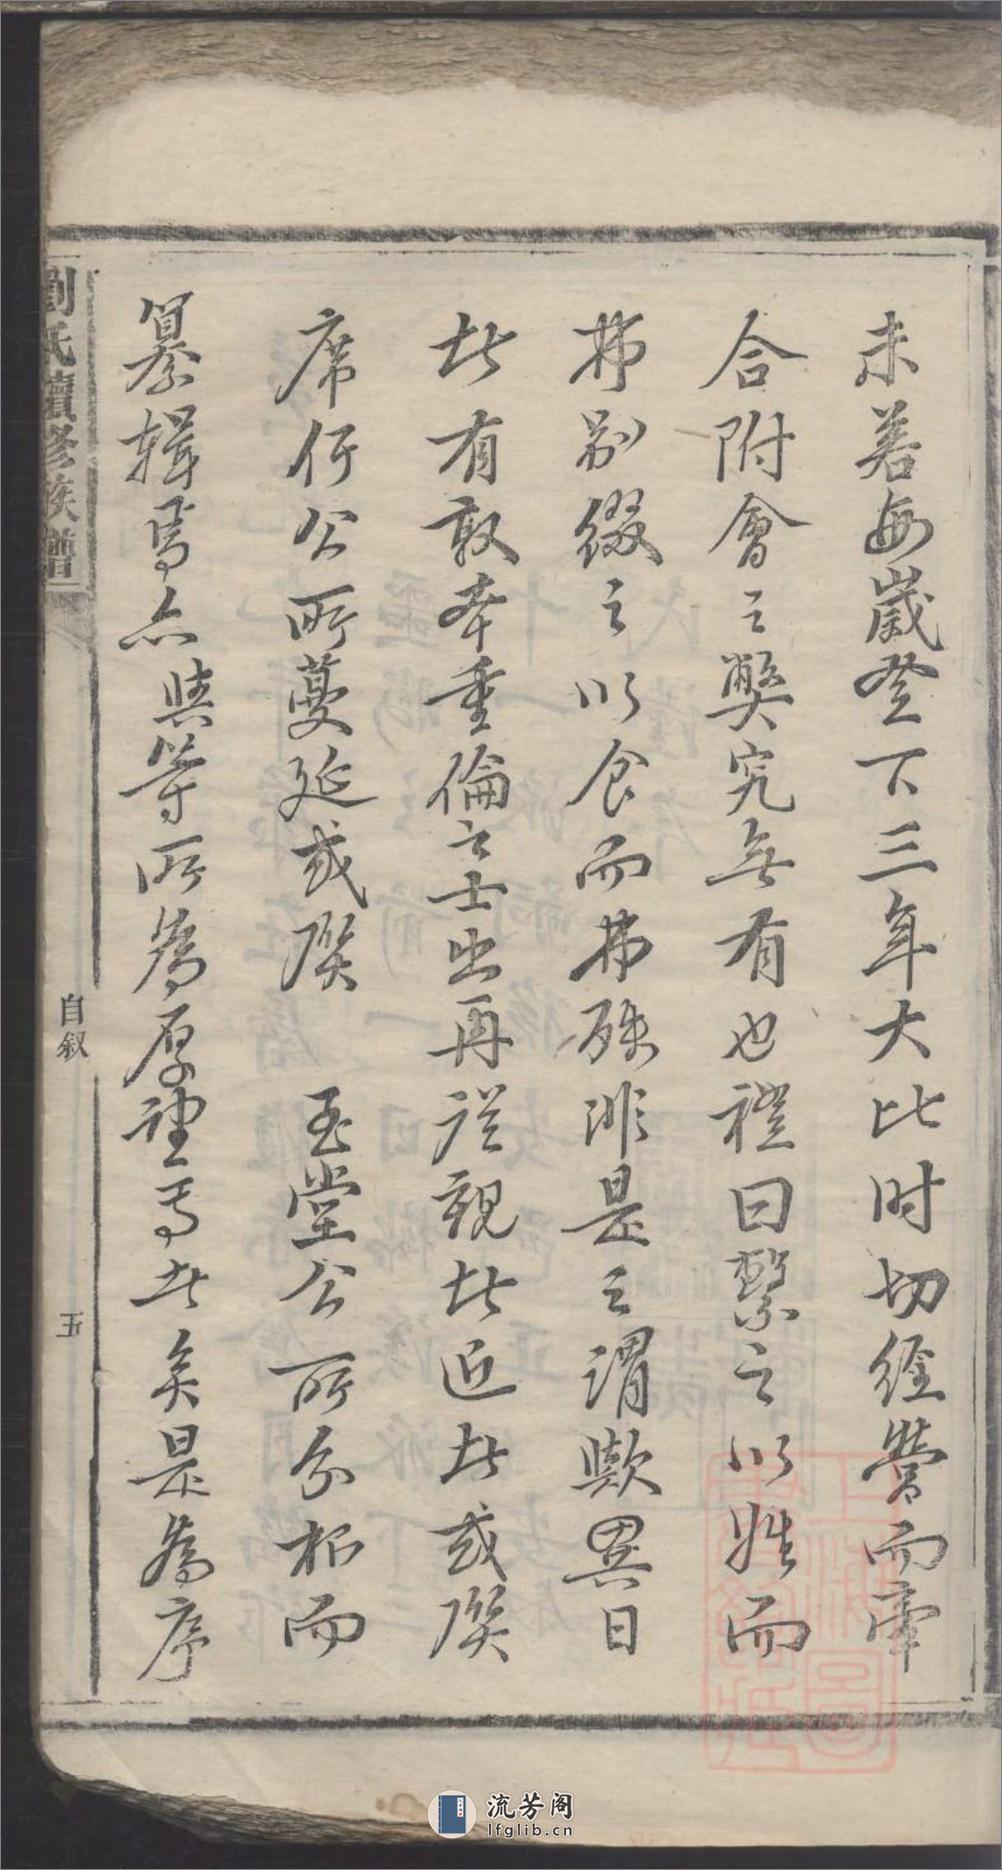 未若每歲登下三年大比时切經營而牽
合附會之弊究無有也禮曰繫之以姓而
弗别缀之以食而弗殊泚是之謂歟異日
此有敦本重倫之士出再從親此近此或隙
席行公所蔓延或隙 玉堂公所分柝而
纂辑焉点共等所為厚望焉者矣是為序
劉氏續修族譜
自叙
五
流芳阁
lfglib.cn